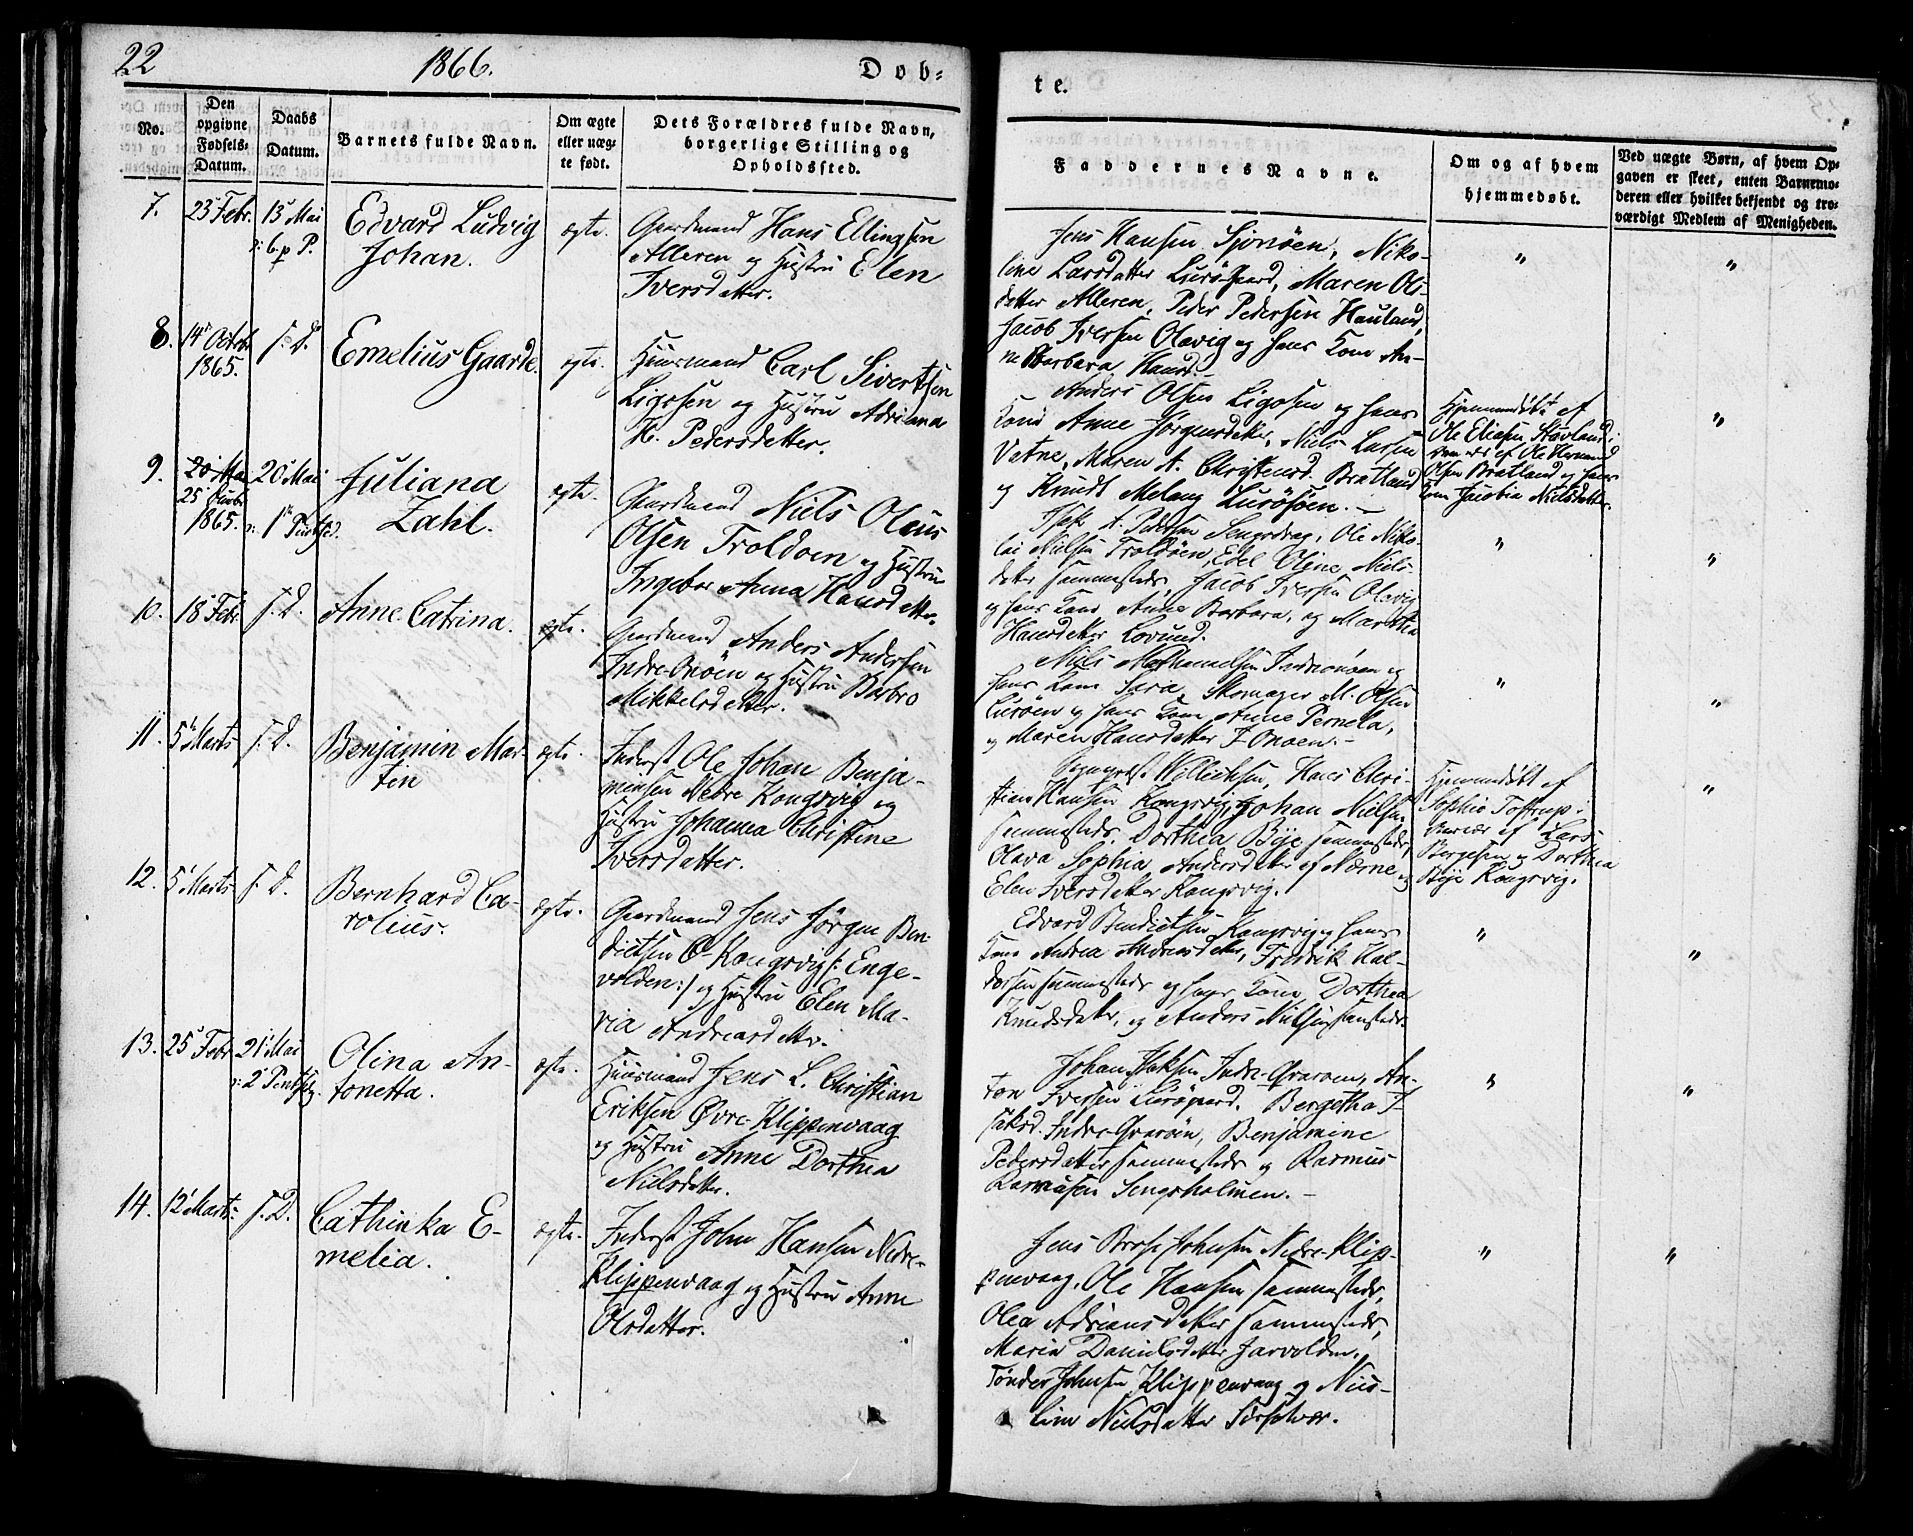 22
1866.
Døb-
te.
No.
Den opgivne Fødsels-Datum.
Daabs Datum.
Barnets fulde Navn.
Om ægte eller uæg-te født.
Dets Forældres fulde Navn, borgerlige Stilling og Opholdssted.
Faddernes Navne.
Om og af hvem hjemmedøbt.
Ved uægte Børn, af hvem Op-
gaven er skeet, enten Barnemo-
deren eller hvilket bekjendt og tro-
værdigt Medlem af Menigheden.
7. 23 Febr. 13 Mai
6 p P.
Edvard Ludvig
Johan.
ægte.
Gaardmand Hans Ellingsen
Alleren og Hustru Elen
Iversdatter.
Jens Hansen Sjonøen, Niko-
line Larsdatter Lurøgaard, Maren Ols-
datter Alleren, Peder Pedersen Hauland,
Jacob Iversen Olavig og hans Kone An-
ne Barbara Hansd.
" "
8. 14 Octobr
1865.
s. D.
Emelius Gaarde.
ægte.
Huusmand Carl Sivertsen
Ligosen og Hustru Adriana
H. Pedersdatter.
Anders Olsen Ligosen og hans
Kone Anne Jørgensdatter, Niels Larsen
Vatne, Maren A. Christensd. Bratland
og Knudt Melang Lurøsøen.
Hjemmedøbt af
Ole Eliasen Stovland i
Nærvær af Ole Hermund
Olsen Bratland og hans
Kone Jacobia Nielsdatter.
"
9. 20 Mai
25 Octbr
1865.
20 Mai
1 Pintsed.
Juliana
Zahl.
ægte.
Gaardmand Niels Olaus
Olsen Troldøen og Hustru
Ingebor Anna Hansdatter.
Isak A. Pedersen Sengsdrag, Ole Niko-
lai Nielsen Troldøen, Edel Oline Niels-
datter sammesteds, Jacob Iversen Olavig
og hans Kone Anne Barbara, og Martha
Hansdatter Lovund.
" "
10. 18 Febr. s. D.
Anne Catrina.
ægte.
Gaardmand Anders Andersen
Indre Onøen og Hustru Barbro
Mikkelsdatter.
Niels Nathanaelsen Indreonøen og
hans Kone Sara, Skomager M. Olsen
Lurøen og hans Kone Anne Pernela,
og Maren Hansdatter I-Onøen.
" "
11. 5 Marts s. D.
Benjamin Mar-
tin
ægte.
Inderst Ole Johan Benja-
minsen Nedre Kongsvig og
Hustru Johanna Christine
Iversdatter.
Willicksen, Hans Chri-
stian Hansen Kongsvig, Johan Nielsen
sammesteds, Dorthea Bye sammesteds,
Olava Sophia Andersdatter af Nærne, og
Elen Iversdatter Kongsvig.
Hjemmedøbt af
Sophie Toftrup i
Nærvær af Lars
Bergesen og Dorthea
Bye Kongsvig.
"
12. 5 Marts s. D.
Bernhard Ca-
rolius.
ægte.
Gaardmand Jens Jørgen Ben-
dictsen Ø-Kongsvig /: Enge-
volden :/ og Hustru Elen Ma-
ria Andreasdatter.
Edvard Bendictsen Kongsvig og hans
Kone Andrea Andreasdatter, Fredrik Hal-
dorsen sammesteds og hans Kone Dorthea
Knudsdatter, og Anders Nielsen sammesteds.
" "
13. 25 Febr 21 Mai
2 Pintsdg.
Olina An-
tonetta.
ægte.
Huusmand Jens L. Christian
Eriksen Øvre Klippenvaag
og Hustru Anne Dorthea
Nielsdatter.
Johan Isaksen Indre-Qvarøen, An-
ton Iversen Lurøgaard, Bergetha I-
saksd. Indre-Qvarøen, Benjamine
Pedersdatter sammesteds og Rasmus
Rasmusen Sengsholmen.
" "
14. 12 Marts s. D.
Cathinka E-
melia.
ægte.
Inderst John Hansen Nedre-
Klippenvaag og Hustru Anne
Olsdatter.
Jens Johnsen Nedre-Klip-
penvaag, Ole Hansen sammesteds,
Olea Adriansdatter sammesteds,
Maria Danielsdatter Jarvolden,
Tønder Johnsen Klippenvaag og
Nielsdatter
" "